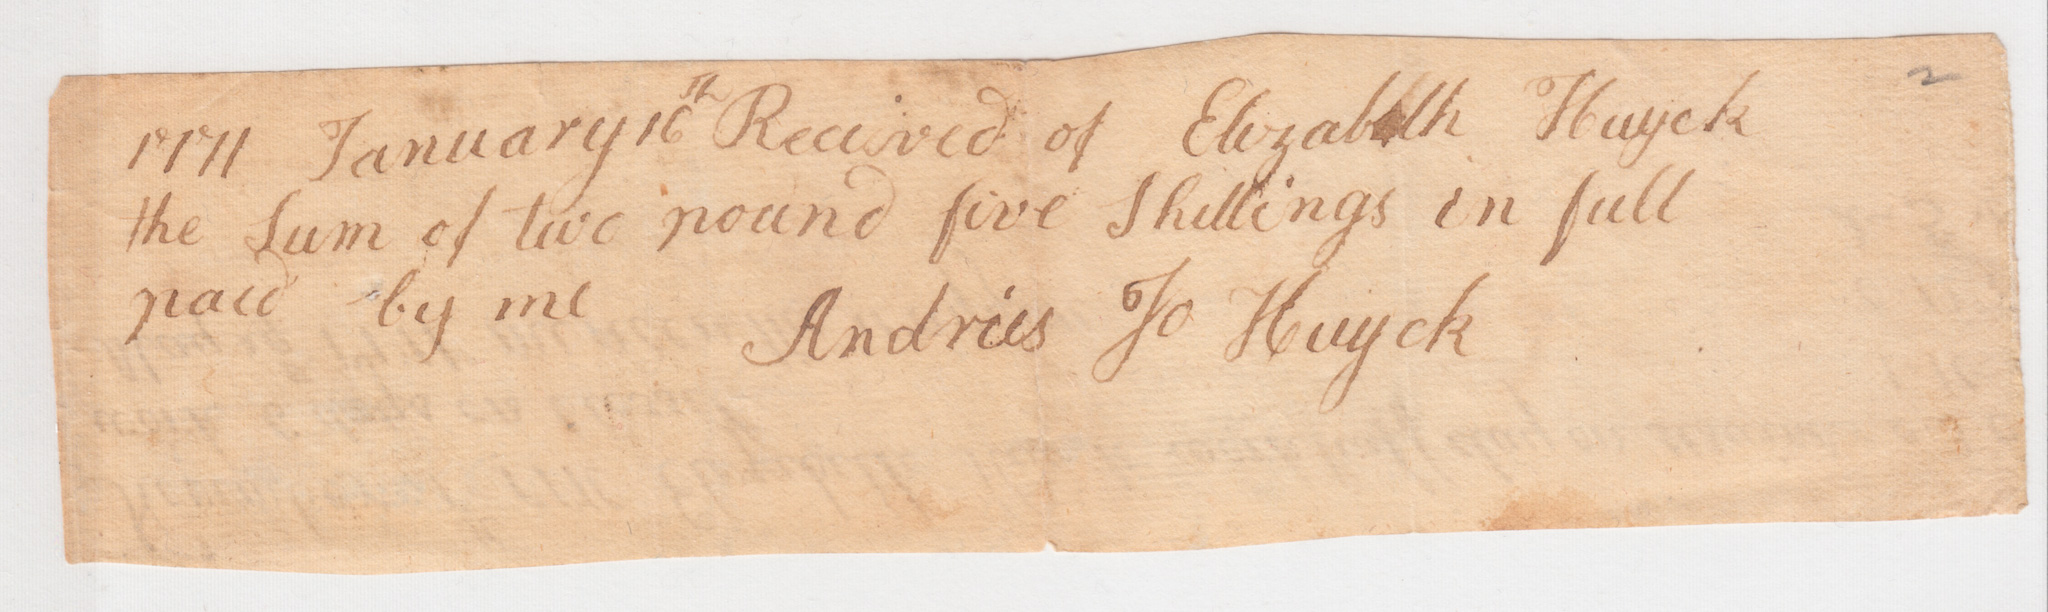 2
1771 January 16th Received of Elizabeth Huyck
the Sum of two pound five Shillings in full
paid by me
Andries Jo Huyck